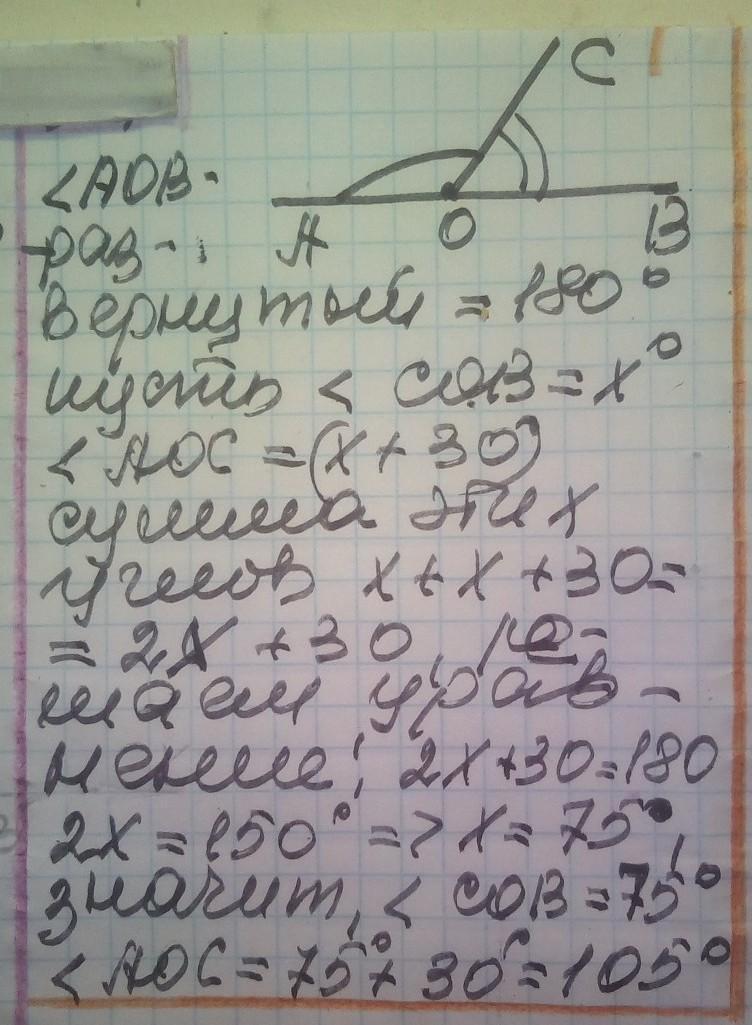 C
<АОВ -
A O B
раз-
вернутый = 180°
пусть < СОВ = x°
< АОС = (x + 30)°
сумма этих
углов x + x + 30 =
= 2x + 30, ре-
шаем урав -
нение: 2x + 30 = 180
2x = 150° => x = 75°,
значит, < СОВ = 75°
< АОС = 75° + 30° = 105°